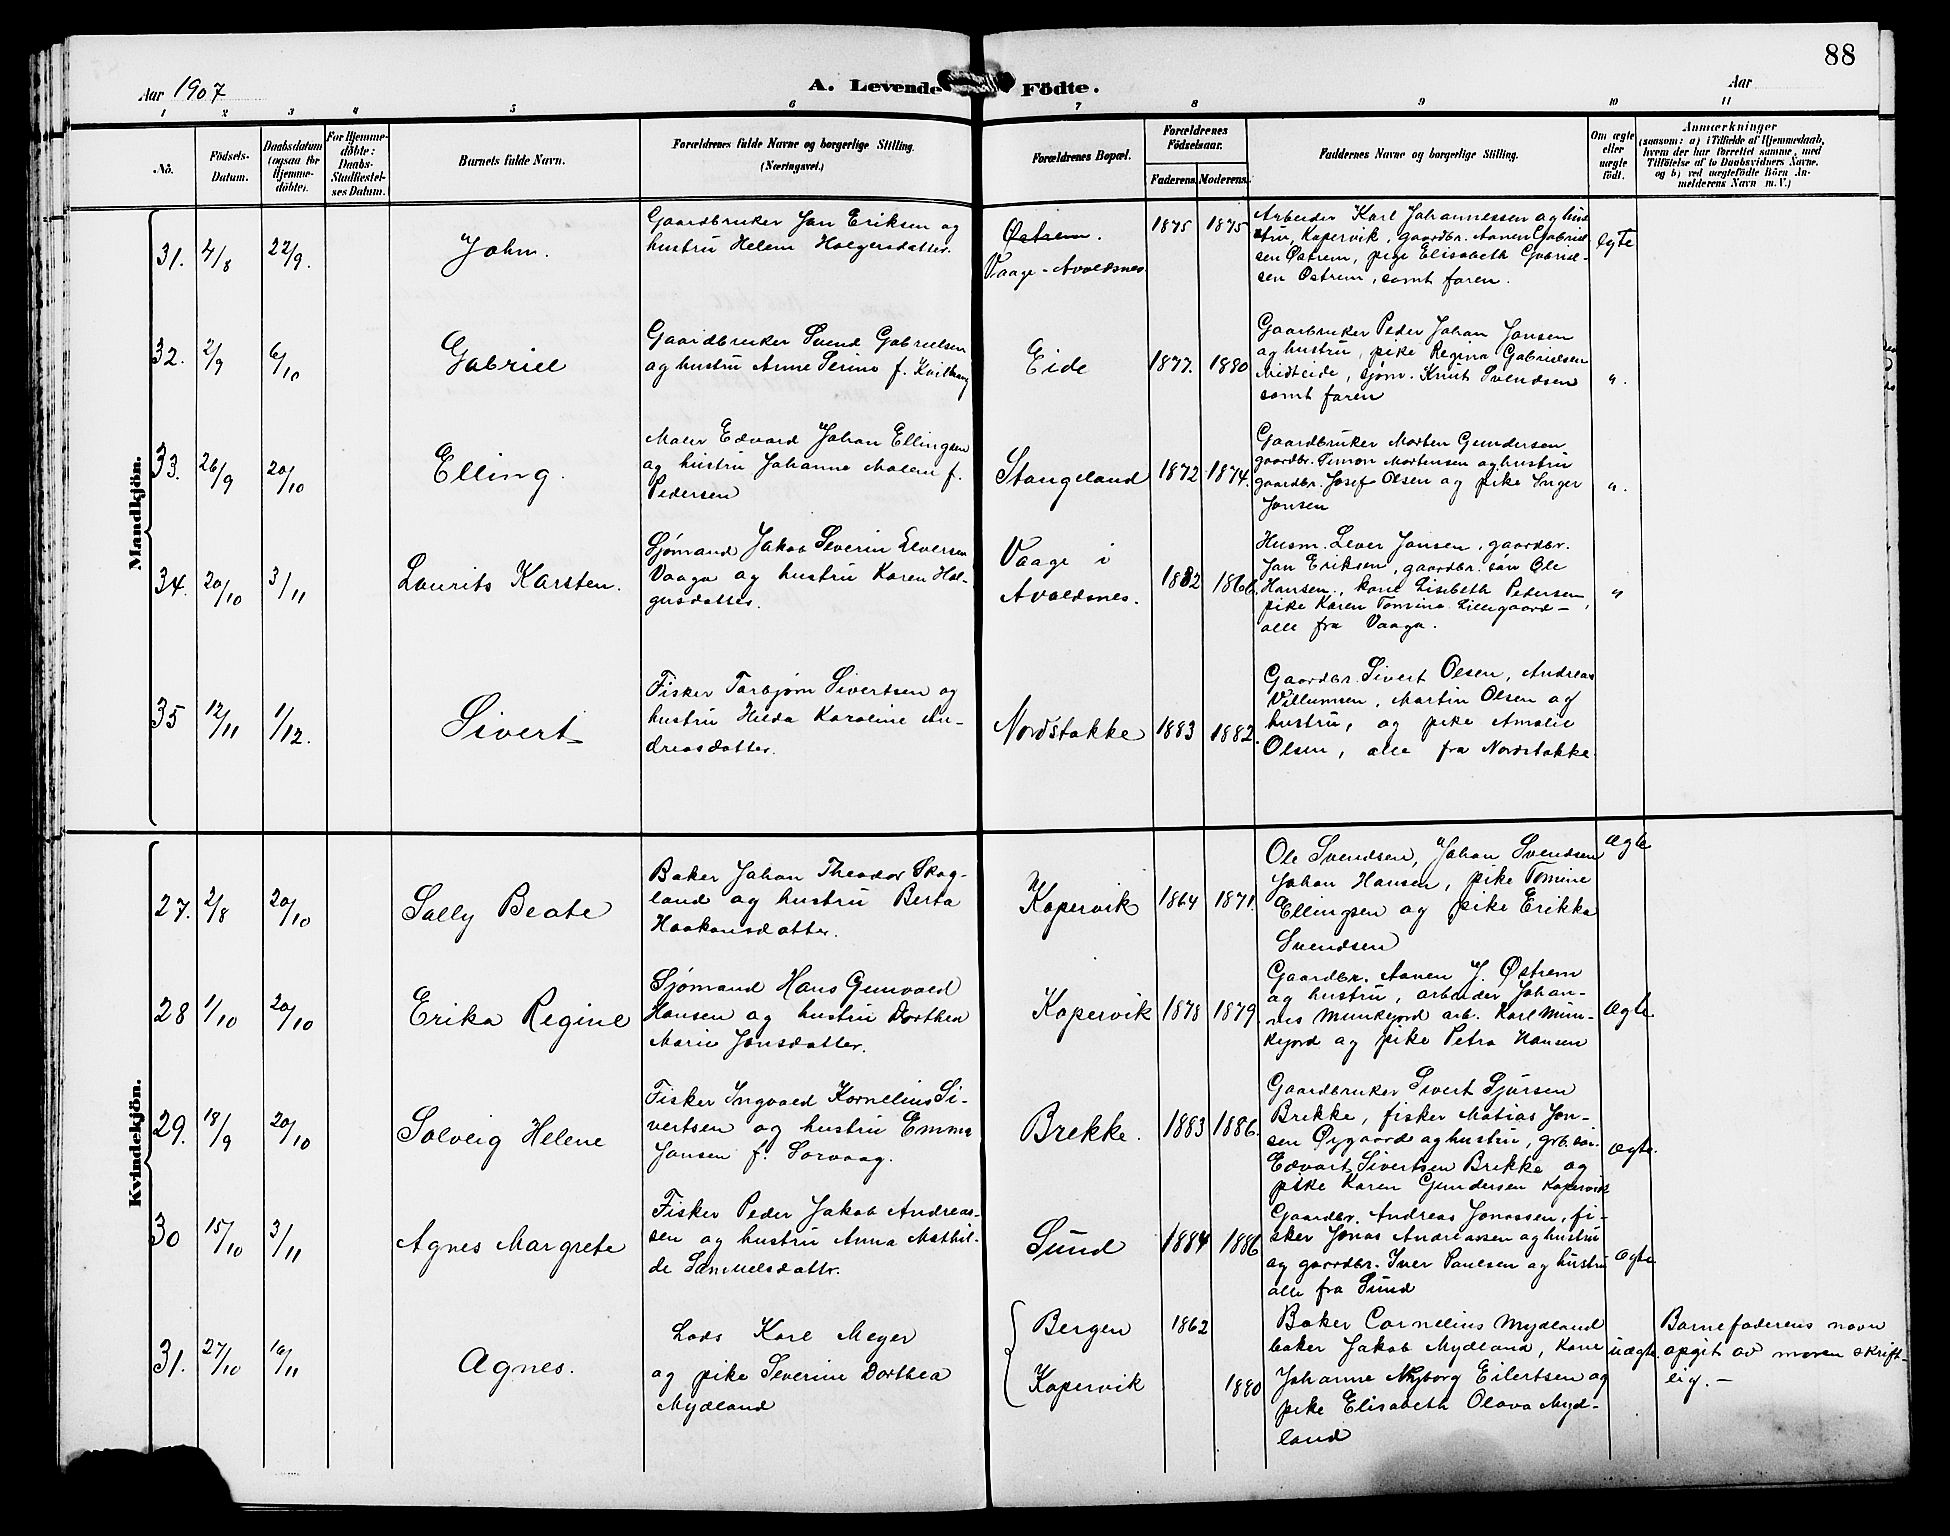 88
Aar 1907
A. Levende Födte.
Aar
1 2 3 4 5 6 7 8 9 10 11
No.
Födsels-
Datum.
Daabsdatum
(ogsaa for
Hjemme-
döbte).
For Hjemme-
döbte:
Daabs-
Stadfæstel-
ses Datum.
Barnets fulde Navn.
Forældrenes fulde Navne og borgerlige Stilling.
(Næringsvei.)
Forældrenes Bopæl.
Forældrenes
Födselsaar.
Faderens. Moderens.
Faddernes Navne og borgerlige Stilling.
Om ægte
eller
uægte
födt.
Anmærkninger
(saasom: a) i Tilfælde af Hjemmedaab,
hvem der har forrettet samme, med
Tilföielse af to Daabsvidners Navne,
og b) ved uægtefödte Börn An-
melderens Navn m. V.)
Mandkjön.
31. 4/8 22/9. John.
Gaardbruker Jan Eriksen og
hustru Helene Holgersdatter.
Østrem.
Vaage-Avaldsnes
1875 1875
Arbeider Karl Johannessen og hu-
stru, Kopervik, gaardbr. Aanen Gabriel-
sen Østrem, pige Elisabeth Gabriel-
sen Østrem, samt faren.
Ægte
32. 2/9 6/10 Gabriel
Gaardbruker Svend Gabrielsen
og hustru Anne Serine f. Kvilhaug
Eide
1877. 1880
Gaarbruker Peder Johan Jansen
og hustru, pike Regina Gabrielsen
Midteide, sjøm. Knut Svendsen
samt faren
"
33. 26/9 20/10 Elling.
Maler Edvard Johan Ellingsen
og hustru Johanne Malene f.
Pedersen
Stangeland
1872 1874.
Gaardbruker Morten Gundersen
gaardbr. Simon Mortensen og hustru
gaardbr. Josef Olsen og pike Inger
Jansen
"
34. 20/10 3/11 Laurits Karsten.
Sjømand Jakob Severin Leversen
Vaage og hustru Karen Hol-
gersdatter.
Vaage i
Avaldsnes.
1882 1866.
Husm. Lever Jansen, gaardbr.
Jan Eriksen, gaardbr. søn Ole
Hansen, kone Lisebeth Pedersen,
pike Karen Tomine Lillegaard -
alle fra Vaage.
"
35 12/11 1/12. Sivert
Fisker Torbjørn Sivertsen og
hustru Hilda Karoline An-
dreasdatter.
Nordstokke
1883 1882.
Gaardbr. Sivert Olsen, Andreas
Villumsen, Martin Olsen og
hustru, og pike Amalie
Olsen, alle fra Nordstokke
Kvindekjön.
27. 2/8 20/10 Sally Beate
Baker Johan Theodor Skog-
land og hustru Berta
Haakonsdatter.
Kopervik
1864 1871.
Ole Svendsen, Johan Svendsen
Johan Hansen, pike Tomine
Ellingsen og pike Erikka
Svendsen
ægte
28 1/10 20/10 Erika Regine
Sjømand Hans Gunvald
Hansen og hustru Dorthea
Marie Jonsdatter.
Kopervik
1878 1879
Gaardbr. Aanen J. Østrem
og hustru, arbeider Johan-
nes Munkejord arb. Karl Mun-
kejord og pike Petra Hansen
ægte
29. 18/9 20/10 Solveig Helene
Fisker Ingvald Kornelius Si-
vertsen og hustru Emma
Jansen f. Sørvaag.
Brekke.
1883 1886.
Gaardbruker Sivert Sjursen
Brekke, fisker Matias Jon-
sen Øygaard og hustru, grb. søn
Edvart Sivertsen Brekke og
pike Karen Gundersen Kopervik
ægte.
30 15/10 3/11 Agnes Margrete
Fisker Peder Jakob Andreas-
sen og hustru Anna Mathil-
de Samuelsdattr.
Sund
1884 1886
Gaardbr. Andreas Jonassen, fi-
sker Jonas Andreassen og hustru
og gaardbr. Iver Paulsen og hustru
alle fra Sund
ægte
31. 27/10 10/11 Agnes.
Lods Karl Meyer
og pike Severine Dorthea
Mydland
Bergen
Kopervik
1862
1880
Baker Cornelius Mydland
baker Jakob Mydland, kone
Johanne Nyborg Eilertsen og
pike Elisabeth Olava Myd-
land
uægte.
Barnefaderens navn
opgit av moren skrift-
lig. -